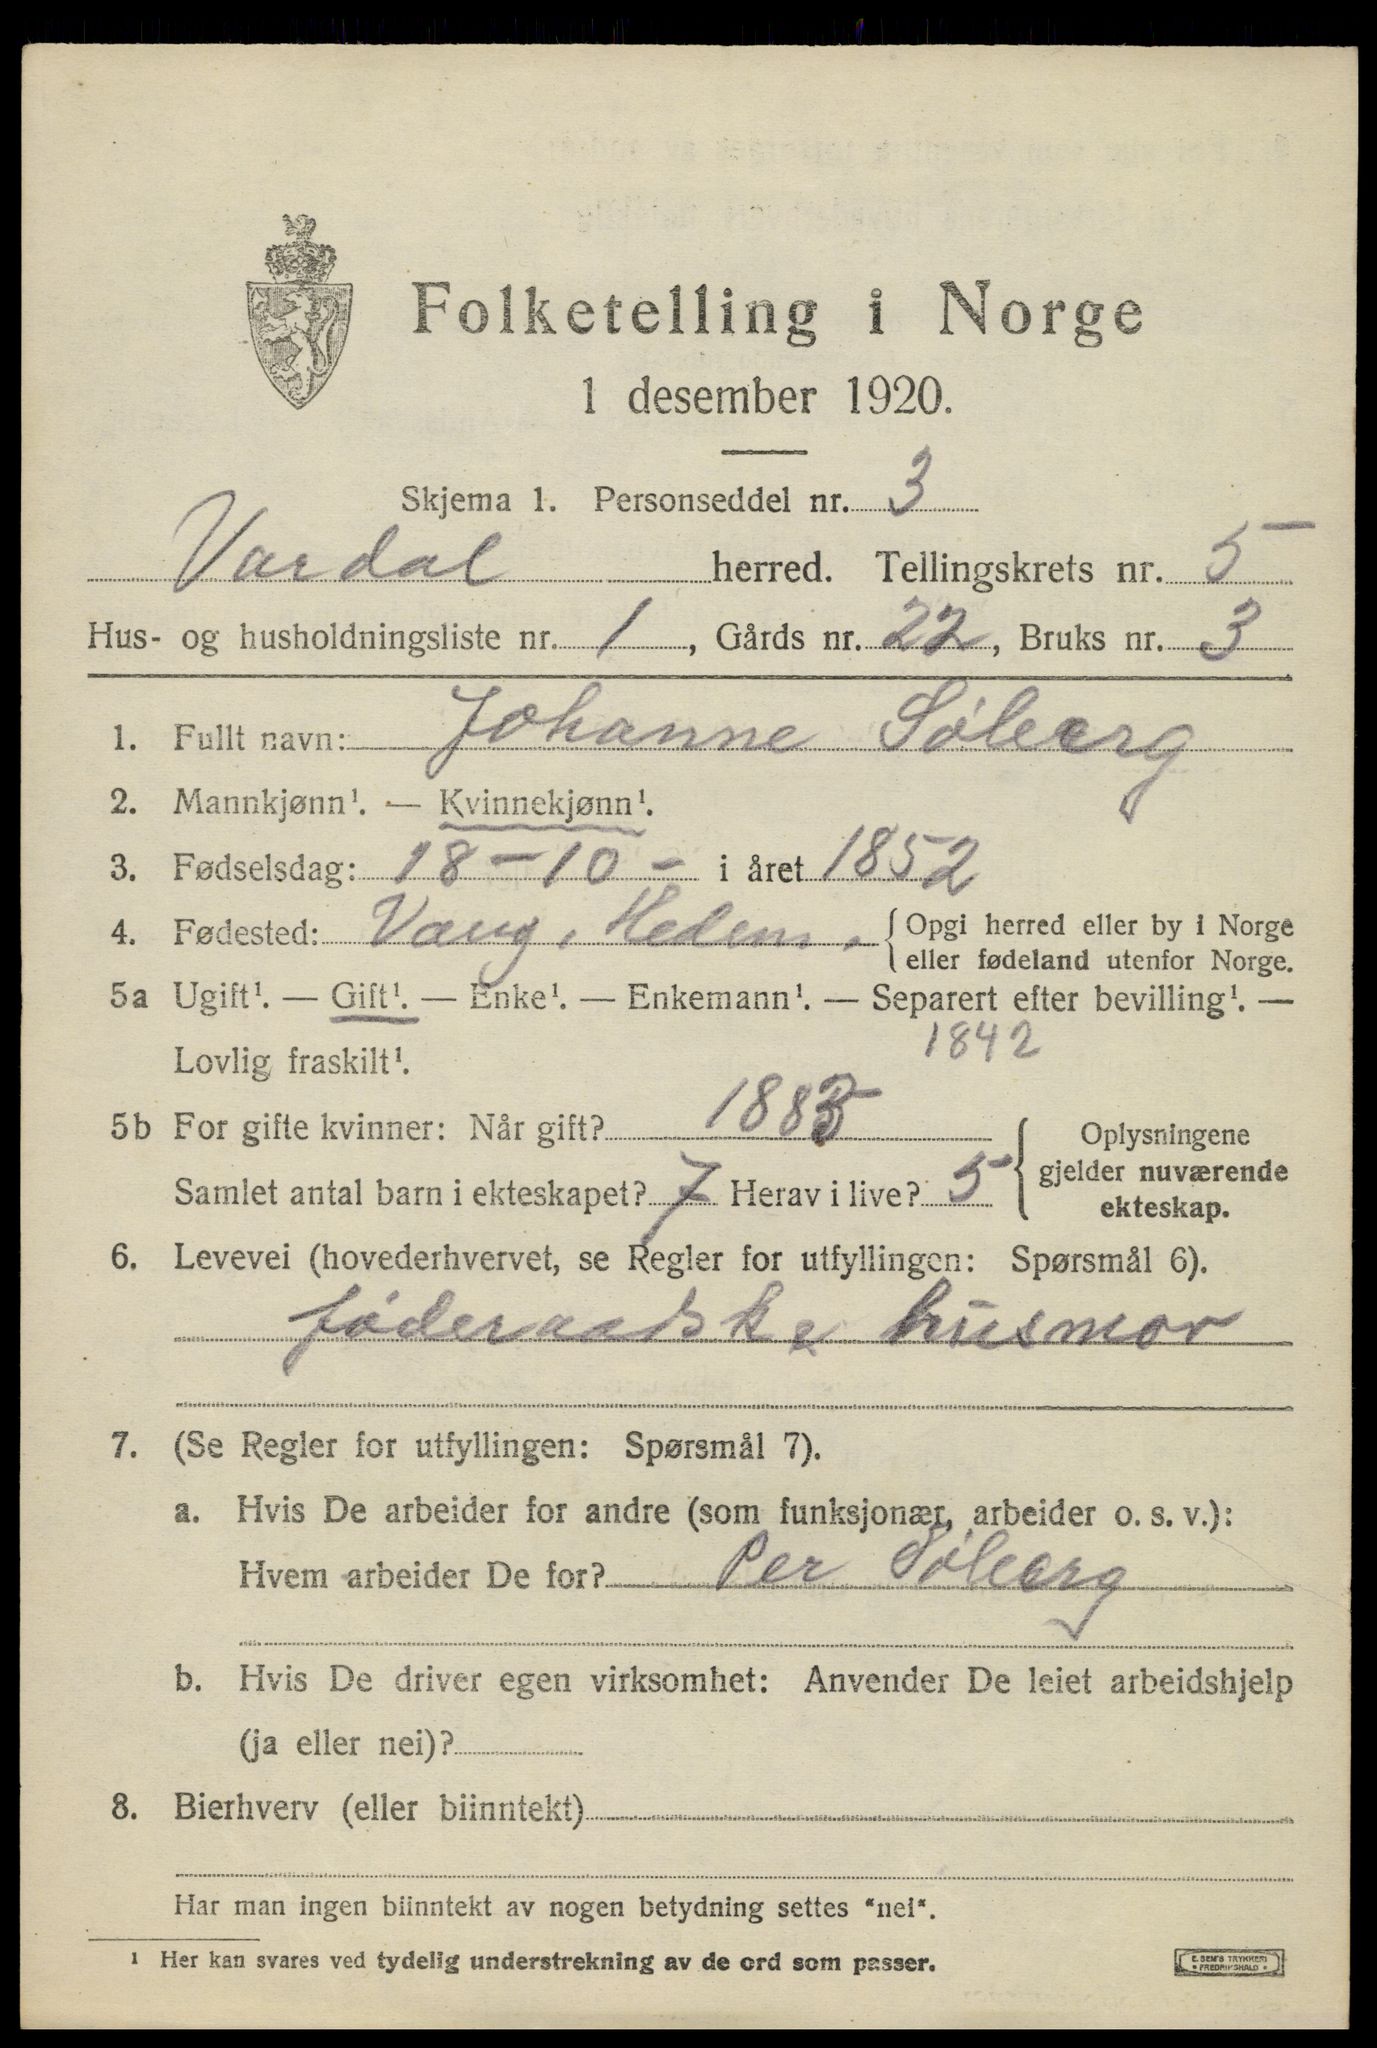 Folketelling i Norge
1 desember 1920.
Skjema 1. Personseddel nr. 3
Vardal herred. Tellingskrets nr. 5
Hus- og husholdningsliste nr. 1, Gårds nr. 22, Bruks nr. 3
1. Fullt navn: Johanne Sølberg
2. Mannkjønn¹. — Kvinnekjønn¹.
3. Fødselsdag: 18 - 10 - i året 1852
4. Fødested: Vang, Hedem. { Opgi herred eller by i Norge
eller fødeland utenfor Norge.
5a Ugift¹. — Gift¹. — Enke¹. — Enkemann¹. — Separert efter bevilling¹. —
Lovlig fraskilt¹. 1842
5b For gifte kvinner: Når gift? 1885 { Oplysningene
gjelder nuværende
ekteskap.
Samlet antal barn i ekteskapet? 7 Herav i live? 5
6. Levevei (hovederhvervet, se Regler for utfyllingen: Spørsmål 6).
føderaadske husmor
7. (Se Regler for utfyllingen: Spørsmål 7).
a. Hvis De arbeider for andre (som funksjonær, arbeider o. s. v.):
Hvem arbeider De for? Per Sølberg
b. Hvis De driver egen virksomhet: Anvender De leiet arbeidshjelp
(ja eller nei)?
8. Bierhverv (eller biinntekt)
Har man ingen biinntekt av nogen betydning settes "nei".
¹ Her kan svares ved tydelig understrekning av de ord som passer.
E. SEM'S TRYKKERI
FREDRIKSHALD